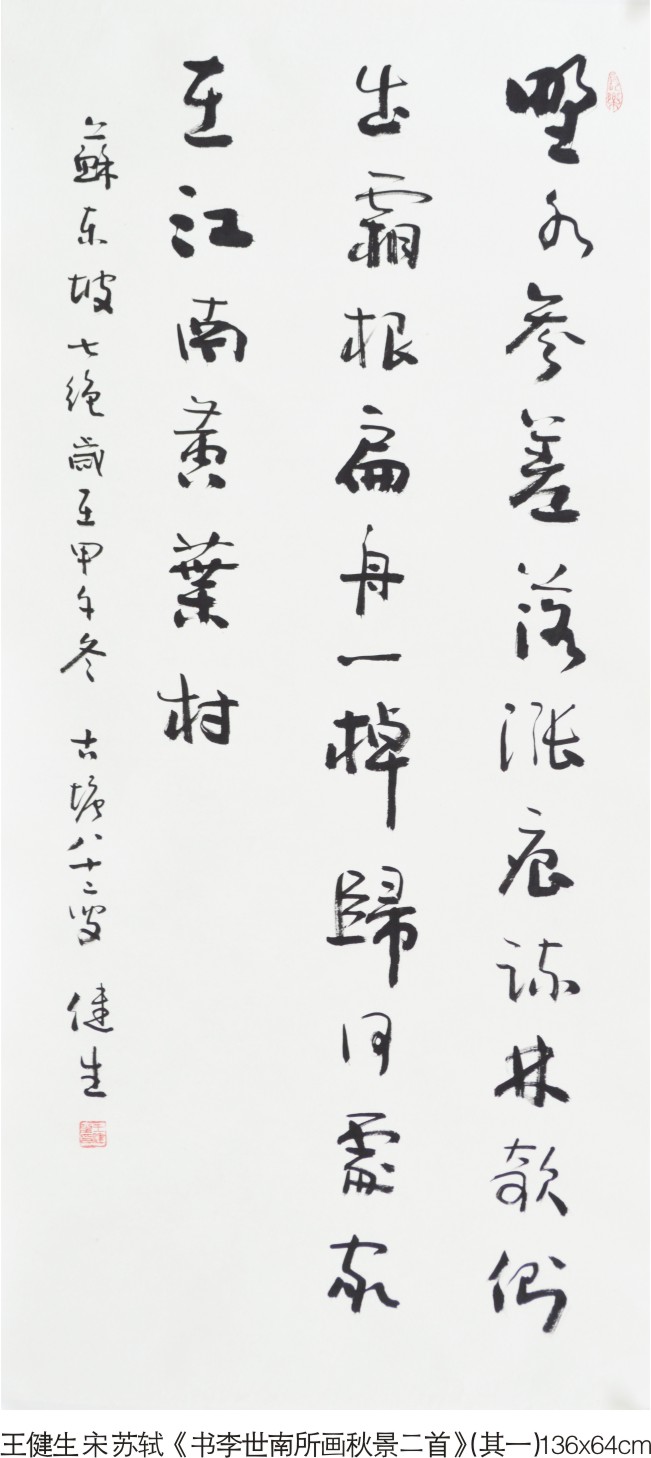 野水參差落漲痕疏林欹倒
出霜根扁舟一棹歸何處家
在江南黄葉村
蘇东坡七絶歲在甲午冬 古塘八十二叟 健生
王健生 宋 苏轼《书李世南所画秋景二首》(其一)136x64cm